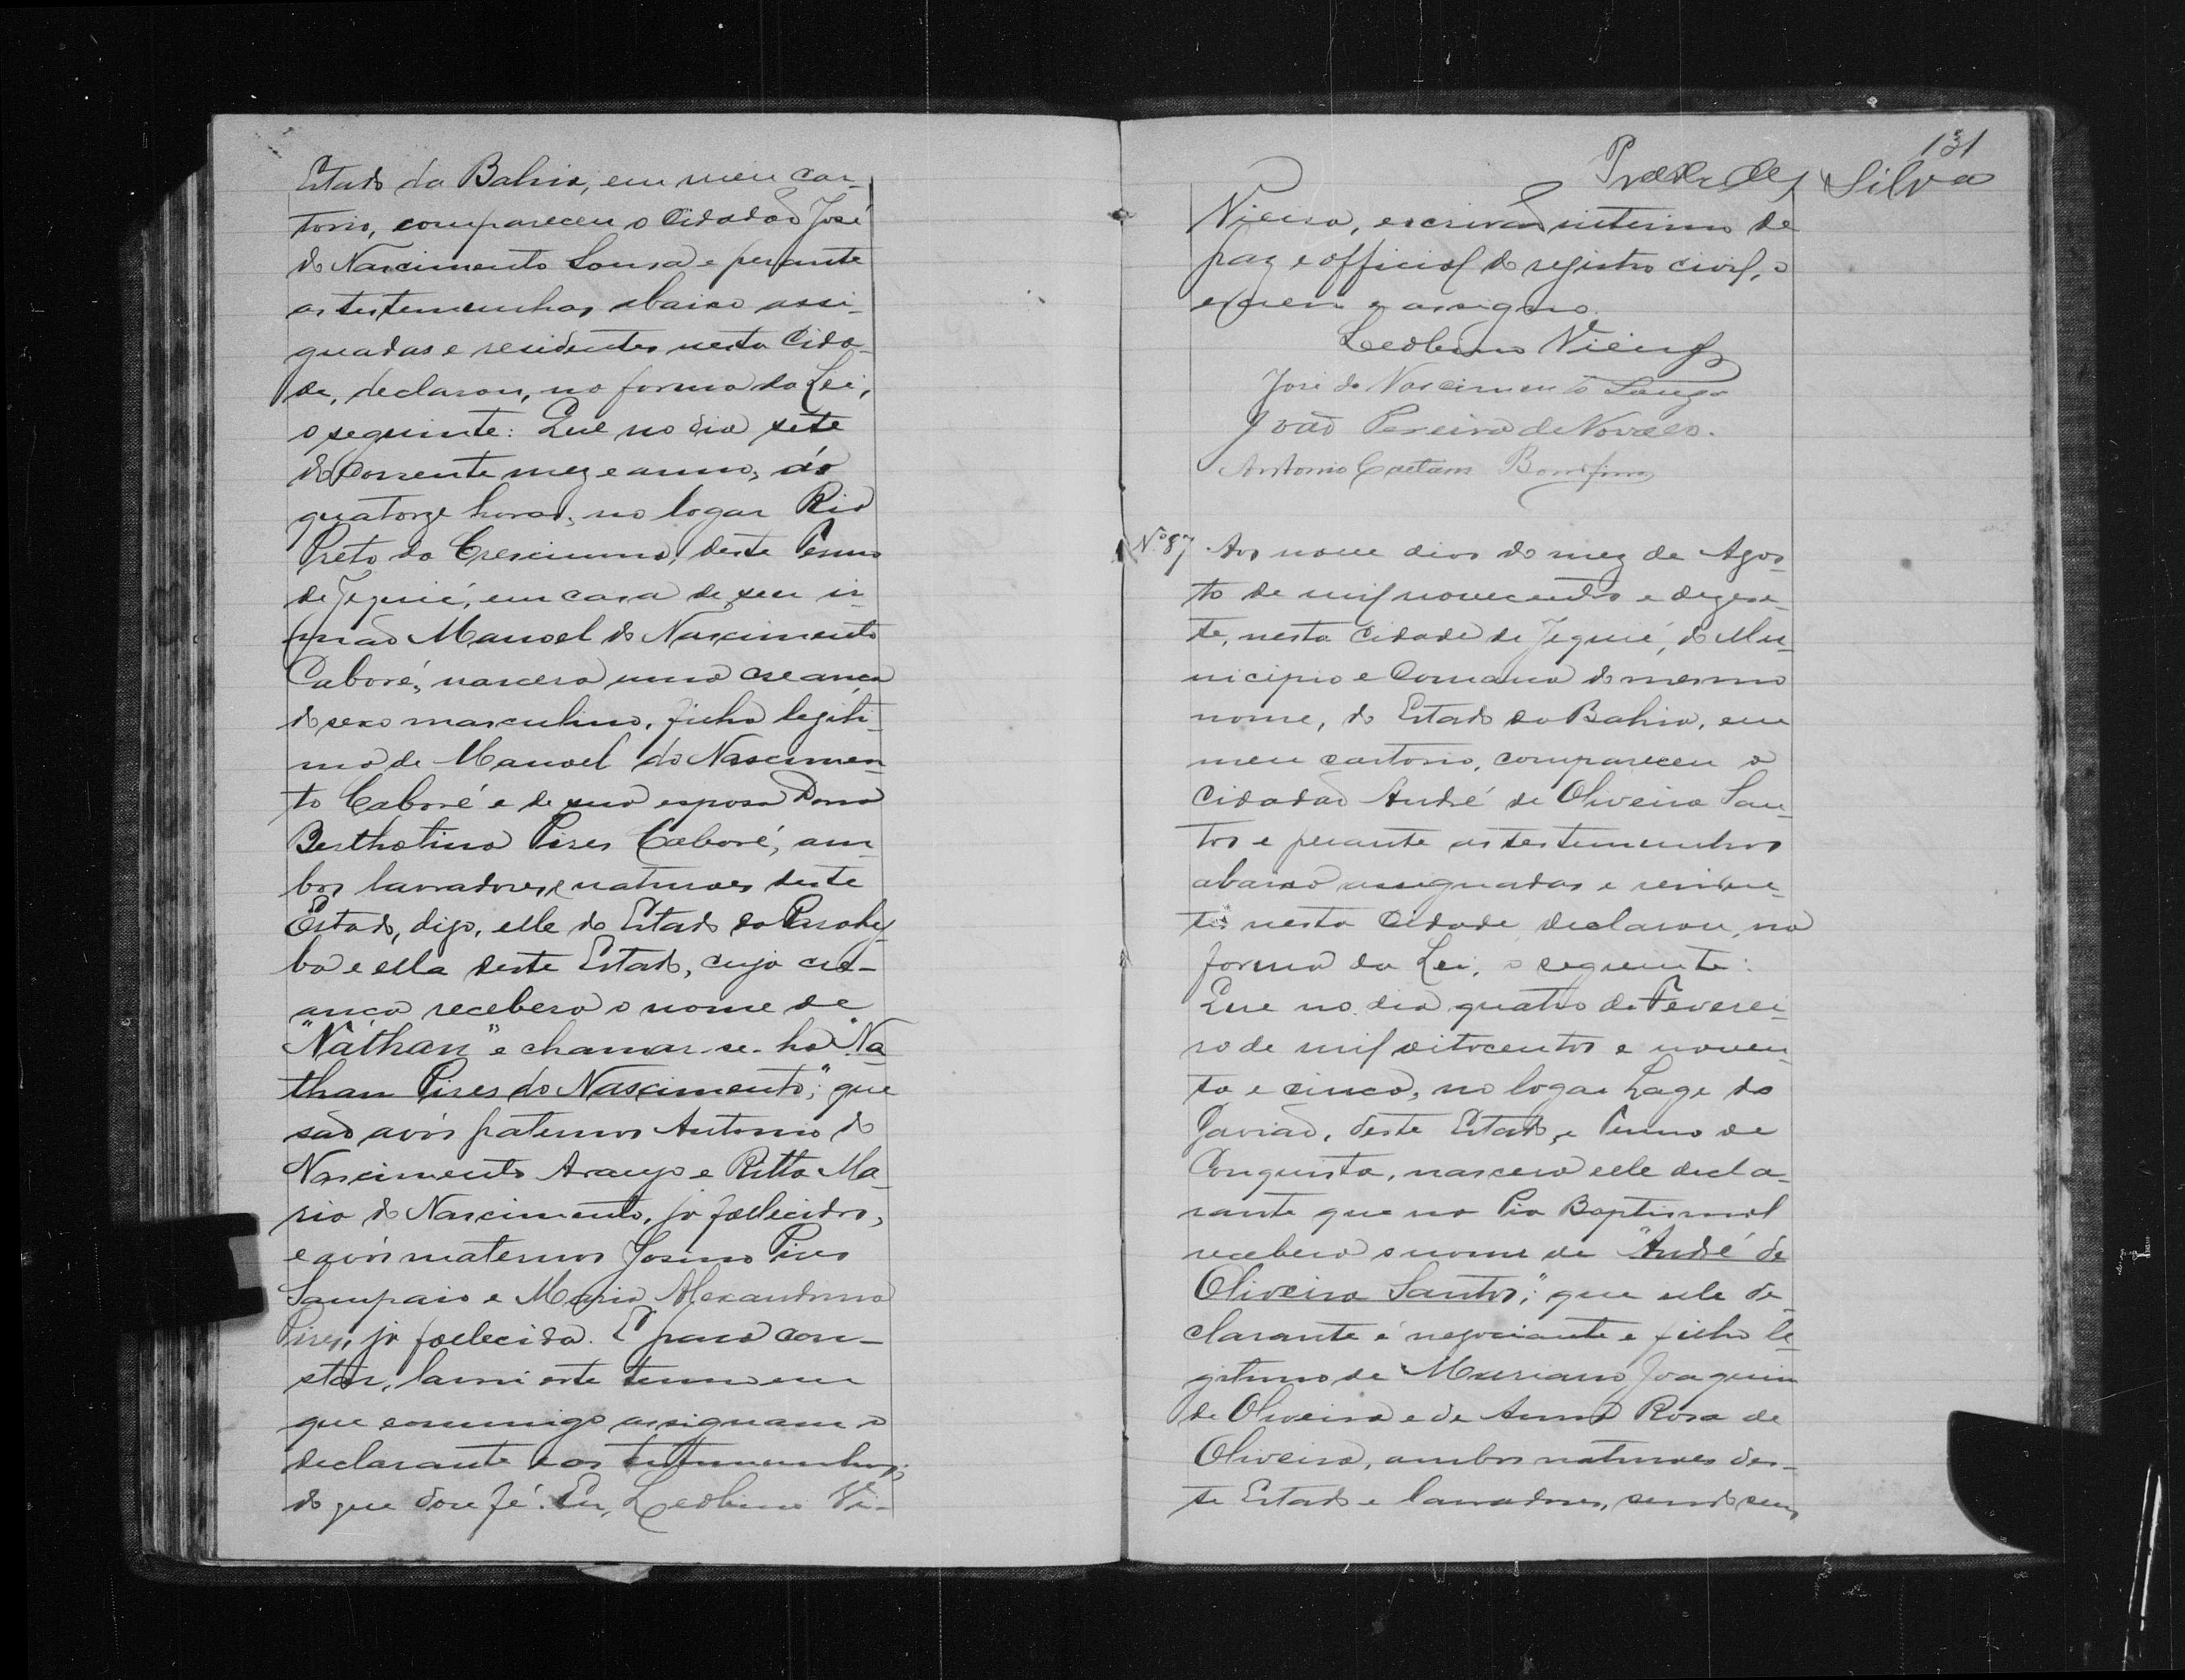 Estado da Bahia, em meu car-
torio, compareceu o Cidadão José
do Nascimento Sousa e perante
as testemunhas abaixo assi-
gnadas e residentes nesta Cida-
de, declarou, na forma da Lei,
o seguinte: Que no dia sete
do corrente mez e anno, ás
quatorze horas, no logar Rio
Preto do Cresciuma, deste Termo
de Jequié, em casa de seu ir-
mão Manoel do Nascimento
Caboré, nascera uma creança
do sexo masculino, filho legiti-
mo de Manoel do Nascimen-
to Caboré e de sua esposa Dona
Berthotina Pires Caboré, am-
bos lavradores, e naturaes deste
Estado, digo, elle do Estado da Parahy-
ba e ella deste Estado, cuja cre-
ança recebera o nome de
"Náthan" e chamar-se-ha "Na-
than Pires do Nascimento;" que
são avós paternos Antonio do
Nascimento Araujo e Ritta Ma-
ria do Nascimento, já fallecidos,
e avós maternos Josino Pires
Sampaio e Maria Alexandrina
Pires, já fallecida. E para con-
star, lavrei este termo em
que commigo assignam o
declarante e as testemunhas;
do que dou fé. Eu, Leolino Vi-
131
Silva
Vieira, escrivão interino de
paz e official do registro civil, o
escrevi e assigno.
Leolino Vieira
José do Nascimento Souza
João Pereira de Novaes.
Antonio Caetano Bomfim
Nº 87 Aos nove dias do mez de Agos-
to de mil novecentos e dezese-
te, nesta Cidade de Jequié, do Mu-
nicipio e Comarca do mesmo
nome, do Estado da Bahia, em
meu cartorio, compareceu o
Cidadão André de Oliveira San-
tos e perante as testemunhas
abaixo assignadas e residen-
tes nesta Cidade, declarou, na
forma da Lei, o seguinte:
Que no dia quatro de Feverei-
ro de mil oitocentos e noven-
ta e cinco, no logar Lage do
Gavião, deste Estado, e Termo de
Conquista, nascera elle decla-
rante que na Pia Baptismal
recebera o nome de "André de
Oliveira Santos;" que elle de-
clarante é negociante e filho le-
gitimo de Mariano Joaquim
de Oliveira e de Anna Rosa de
Oliveira, ambos naturaes des-
te Estado e lavradores, sendo seus